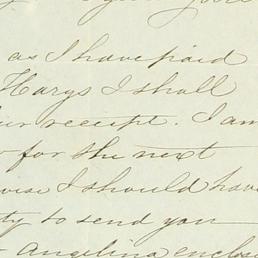 as I have paid
Harys I shall
receipt. I am
for the next
I should have
to send you
Angelina enclose